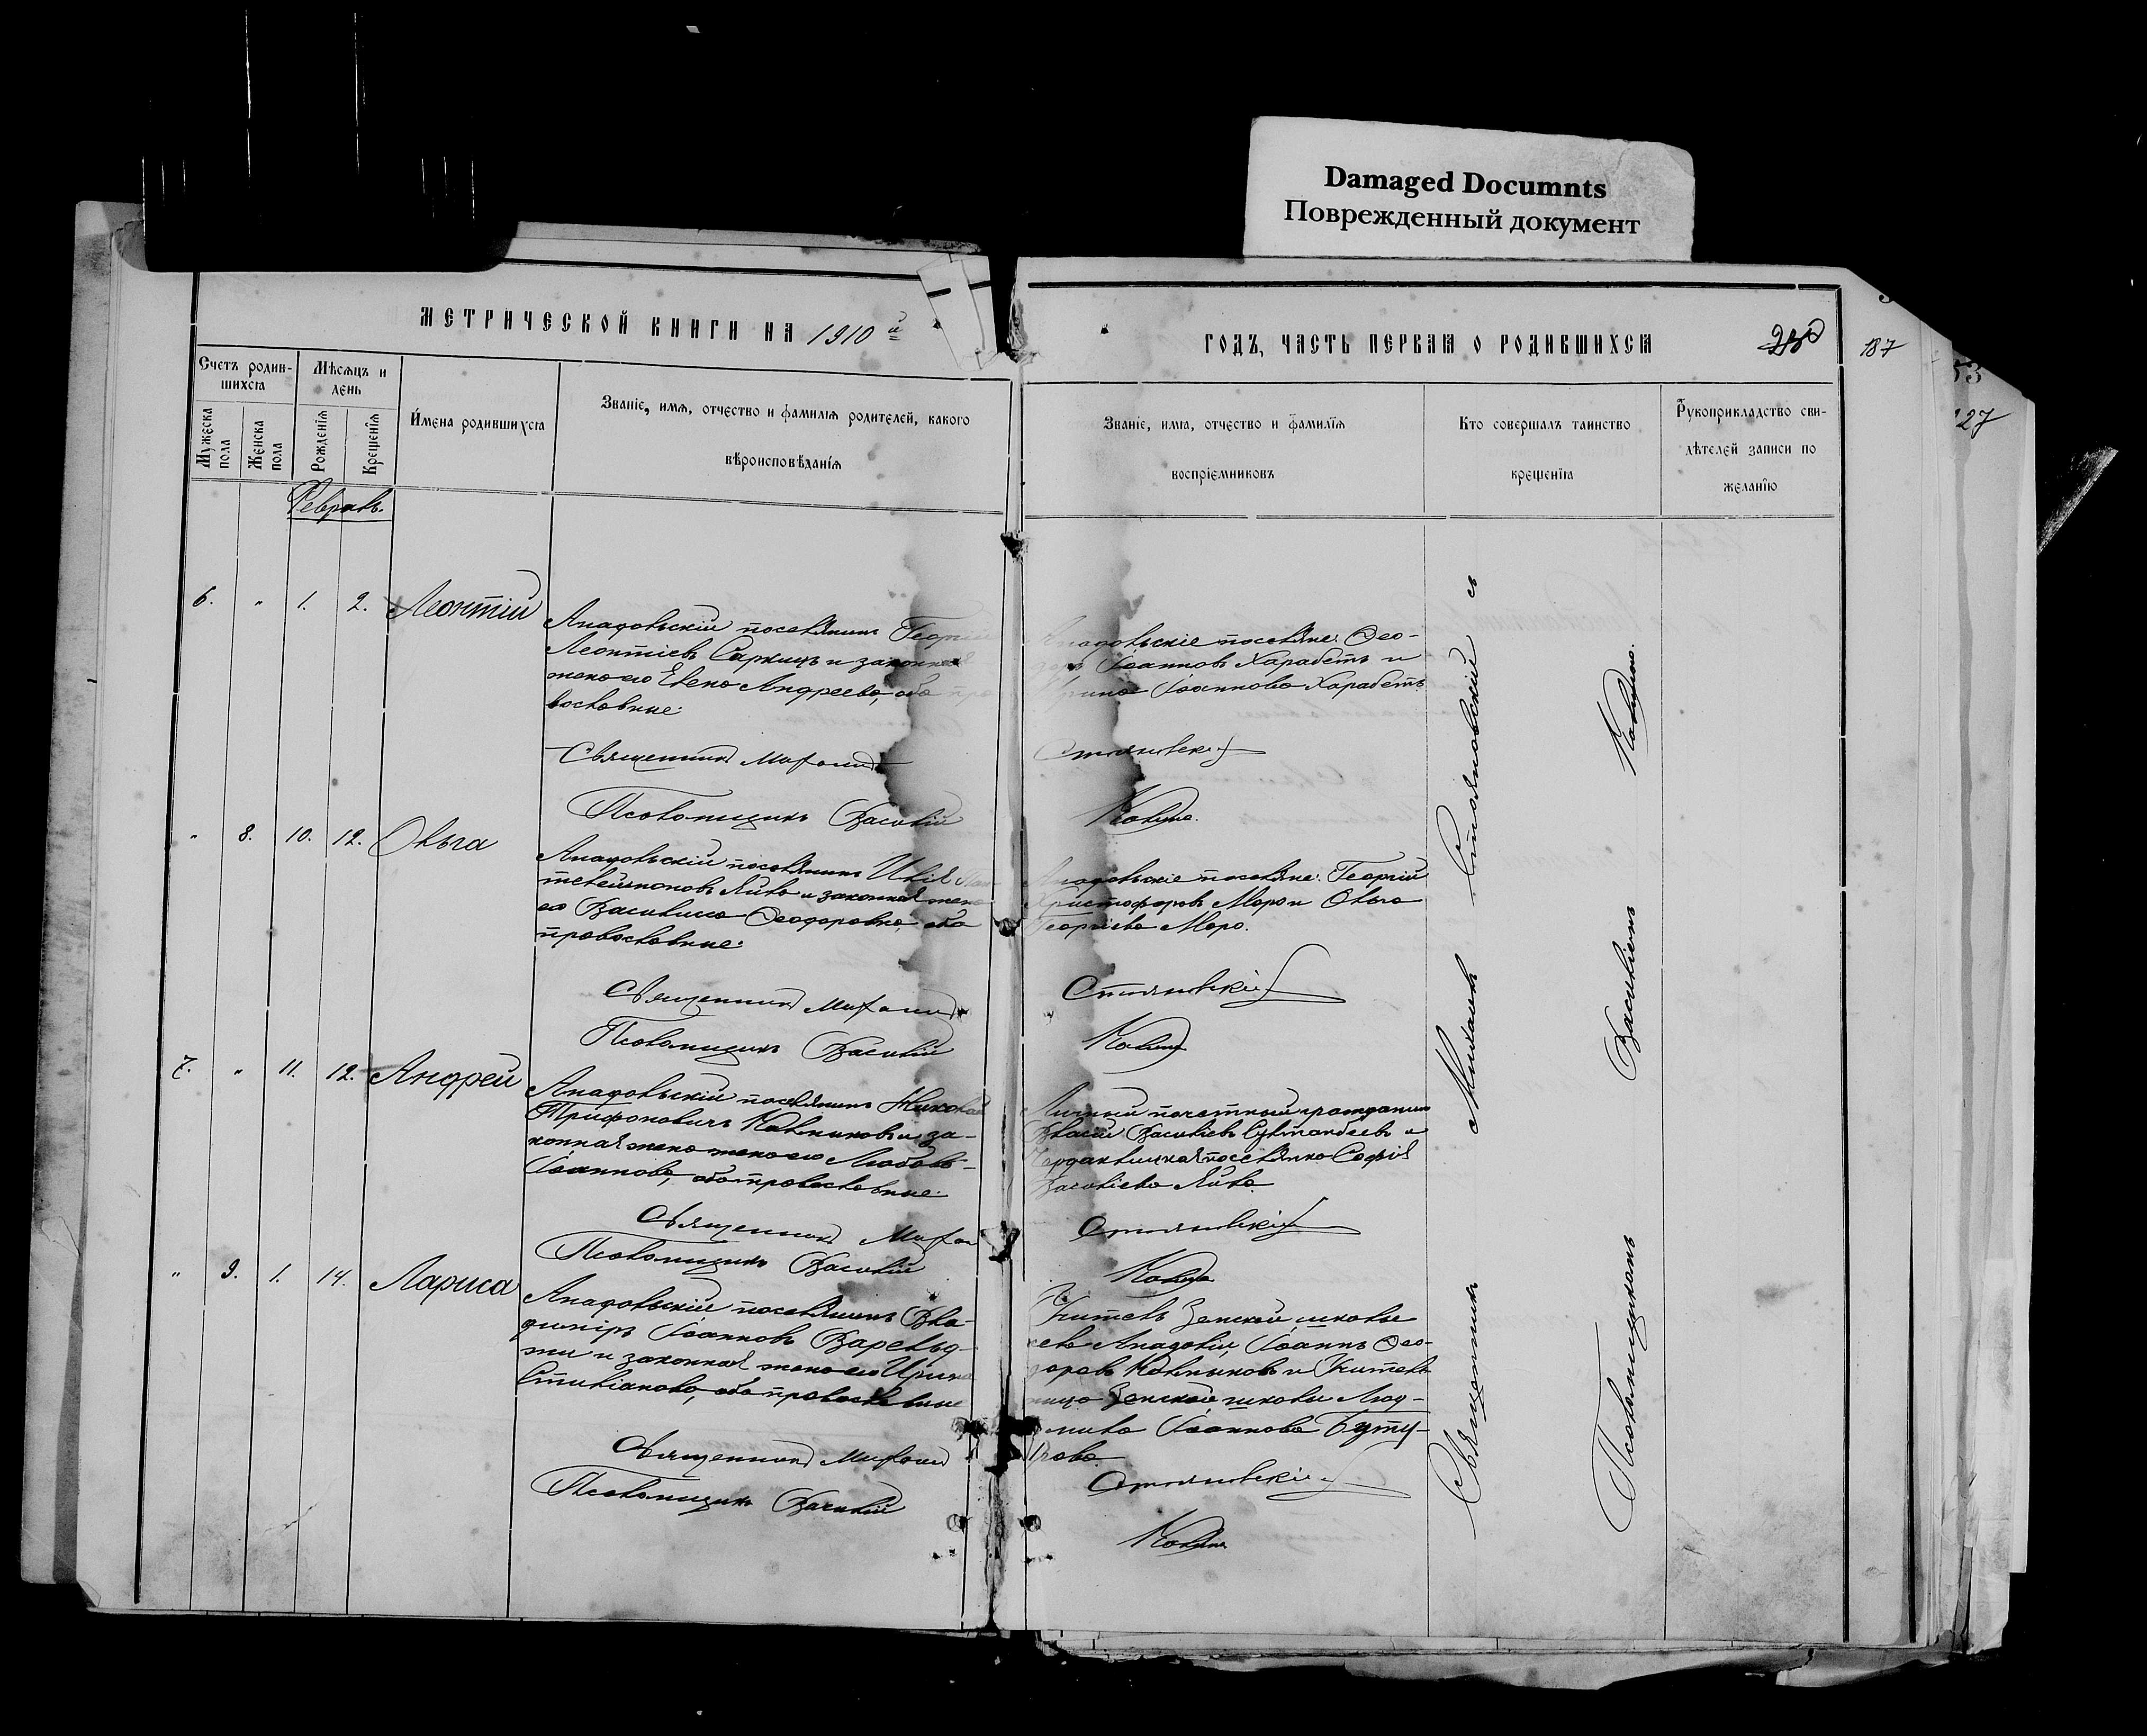 Damaged Documnts
Поврежденный документ
МЕТРИЧЕСКОЙ КНИГИ НА 1910 й
ГОДЪ, ЧАСТЬ ПЕРВАЯ О РОДИВШИХСЯ
187
53
Счетъ родив-
шихся
Мужеска
пола
Женска
пола
Мѣсяцъ и
день
Рожденія
Крещенія
Имена родившихся
Званіе, имя, отчество и фамилія родителей, какого
вѣроисповѣданія
Званіе, имя, отчество и фамилія
воспріемниковъ
Кто совершалъ таинство
крещенія
Рукоприкладство сви-
дѣтелей записи по
желанію
127
Февраль.
6. " 1. 2. Леонтій
Анадольскій поселянинъ Георгій
Леонтіевъ Саркицъ и законная
жена его Елена Андреева, оба пра
вославные.
Священникъ Михаилъ
Псаломщикъ Василій
Анадольскіе поселяне: Ѳео-
доръ Іоанновъ Харабетъ и
Іоаннова Харабетъ
Стояновскій
Колина.
" 8. 10. 12. Ольга
Анадольскій поселянинъ Илія Пан-
телеймоновъ Яйло и законная жена
его Василиса Ѳеодоровна, оба
православные.
Священникъ Михаилъ
Псаломщикъ Василій
Анадольскіе поселяне: Георгій
Христофоровъ Мора и Ольга
Георгіева Мора.
Стояновскій
Колина
7. " 11. 12. Андрей
Анадольскій поселянинъ Николай
Трифоновичъ Калмыковъ и за-
конная жена жена его Любовь
Іоаннова, оба православные.
Священникъ Михаи
Псаломщикъ Василій
Личный почетный гражданинъ
Власій Василіевъ и
поселянка Софія
Василіева Яйло.
Стояновскій
Колина
" 9. 1. 14. Лариса
Анадольскій поселянинъ Вла-
диміръ Іоанновъ
и законная жена его Ирина
Стиліанова, оба православные
Священникъ Михаилъ
Псаломщикъ Василій
Учитель Земской школы
села Анадоліи Іоаннъ Ѳео-
доровъ Калмыковъ и Учитель-
ница Земской школы Люд-
мила Іоаннова Буту-
рова.
Стояновскій
Колина
Священникъ Михаилъ Стояновскій съ
Псаломщикомъ Василіемъ Колиною.